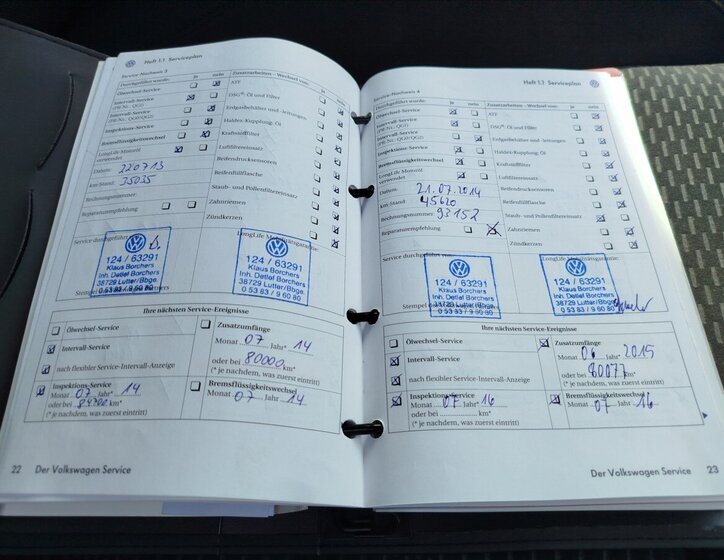 Heft 1.1 Serviceplan
Service-Nachweis 3
Durchgeführt wurde: ja nein
Ölwechsel-Service
(PR-Nr.: QG0)
Intervall-Service
Intervall-Service
(PR-Nr.: QG0/QG2)
Inspektions-Service
Bremsflüssigkeitswechsel
LongLife-Motoröl
verwendet
Datum: 220713
km-Stand: 35035
Rechnungsnummer:
Reparaturempfehlung
Zusatzarbeiten - Wechsel von: ja nein
ATF
DSG®: Öl und Filter
Erdgasbehälter und -leitungen
Haldex-Kupplung, Öl
Kraftstofffilter
Luftfiltereinsatz
Reifendrucksensoren
Reifenfüllflasche
Staub- und Pollenfiltereinsatz
Zahnriemen
Zündkerzen
Service durchgeführt
LongLife Mobilitätsgarantie
124 / 63291
Klaus Borchers
Inh. Detlef Borchers
38729 Lutter/Bbge.
0 53 83 / 9 60 80
124 / 63291
Klaus Borchers
Inh. Detlef Borchers
38729 Lutter/Bbge.
0 53 83 / 9 60 80
Ihre nächsten Service-Ereignisse
Ölwechsel-Service
Intervall-Service
nach flexibler Service-Intervall-Anzeige
Zusatzumfänge
Monat 07 Jahr* 14
oder bei 80000 km*
(* je nachdem, was zuerst eintritt)
Inspektions-Service
Monat 07 Jahr* 14
oder bei km*
(* je nachdem, was zuerst eintritt)
Bremsflüssigkeitswechsel
Monat 07 Jahr 14
22 Der Volkswagen Service
Heft 1.1 Serviceplan
Service-Nachweis 4
Durchgeführt wurde: ja nein
Ölwechsel-Service
Intervall-Service
(PR-Nr.: QG1)
Intervall-Service
(PR-Nr.: QG0/QG2)
Inspektions-Service
Bremsflüssigkeitswechsel
LongLife-Motoröl
verwendet
Datum: 21.07.2014
km-Stand: 45620
Rechnungsnummer: 93152
Reparaturempfehlung
Zusatzarbeiten - Wechsel von: ja nein
ATF
DSG®: Öl und Filter
Erdgasbehälter und -leitungen
Haldex-Kupplung, Öl
Kraftstofffilter
Luftfiltereinsatz
Reifendrucksensoren
Reifenfüllflasche
Staub- und Pollenfiltereinsatz
Zahnriemen
Zündkerzen
Service durchgeführt
LongLife Mobilitätsgarantie:
124 / 63291
Klaus Borchers
Inh. Detlef Borchers
38729 Lutter/Bbge.
0 53 83 / 9 60 80
124 / 63291
Klaus Borchers
Inh. Detlef Borchers
38729 Lutter/Bbge.
0 53 83 / 9 60 80
Ihre nächsten Service-Ereignisse
Ölwechsel-Service
Intervall-Service
nach flexibler Service-Intervall-Anzeige
Zusatzumfänge
Monat 06 2015
oder bei 80077 km*
(* je nachdem, was zuerst eintritt)
Inspektions-Service
Monat 07 Jahr* 16
oder bei km*
(* je nachdem, was zuerst eintritt)
Bremsflüssigkeitswechsel
Monat 07 Jahr 16
Der Volkswagen Service 23